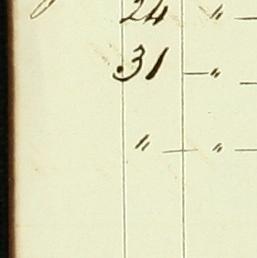 24 " —
31 — " —
" — " —